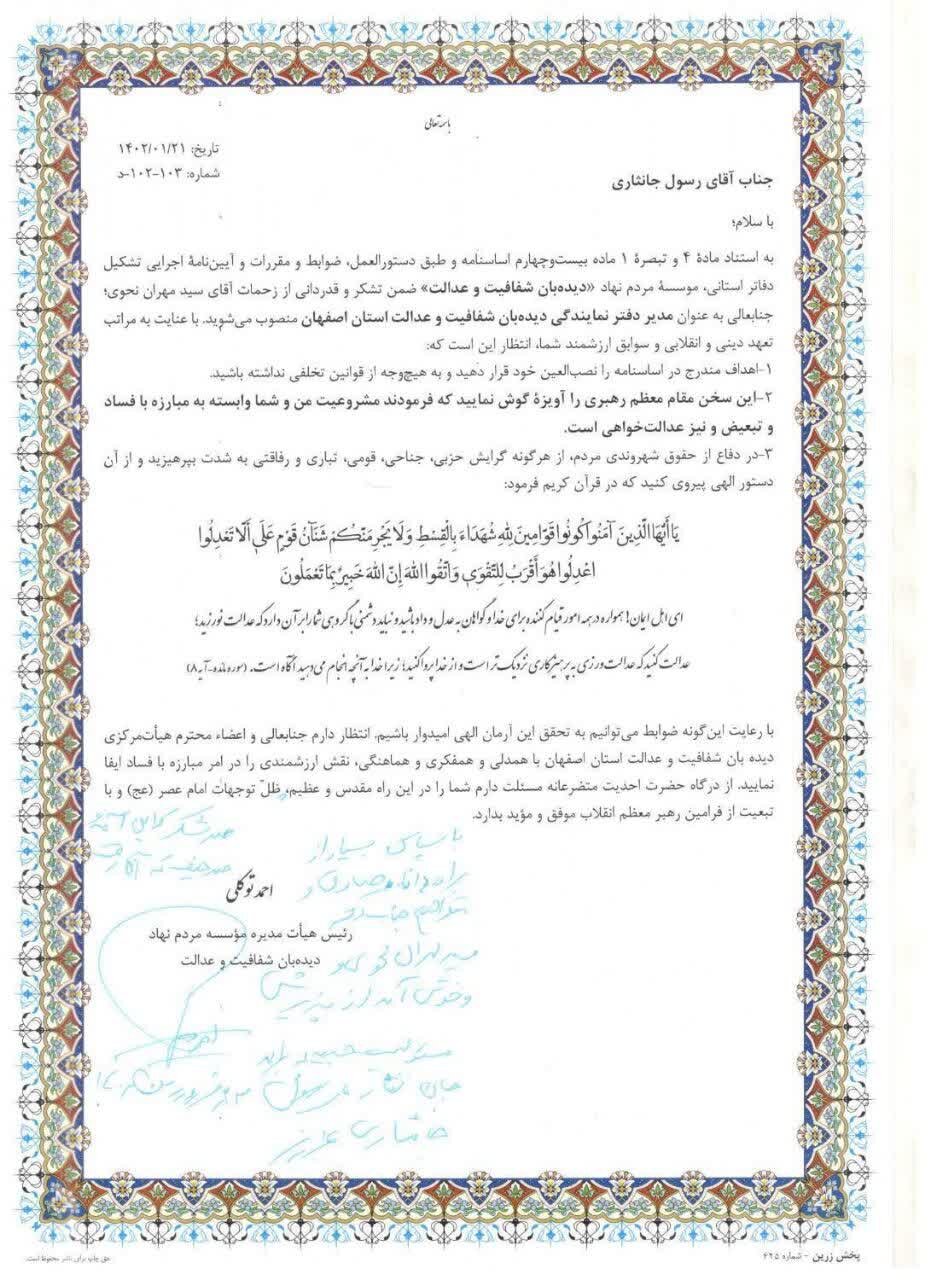 باسمه تعالی
تاریخ: ۱۴۰۲/۰۱/۲۱
شماره: ۱۰۳-۱۰۲-د
جناب آقای رسول جانثاری
با سلام؛
به استناد مادهٔ ۴ و تبصرهٔ ۱ ماده بیست‌وچهارم اساسنامه و طبق دستورالعمل، ضوابط و مقررات و آیین‌نامهٔ اجرایی تشکیل
دفاتر استانی، موسسهٔ مردم نهاد «دیده‌بان شفافیت و عدالت» ضمن تشکر و قدردانی از زحمات آقای سید مهران نحوی؛
جنابعالی به عنوان مدیر دفتر نمایندگی دیده‌بان شفافیت و عدالت استان اصفهان منصوب می‌شوید. با عنایت به مراتب
تعهد دینی و انقلابی و سوابق ارزشمند شما، انتظار این است که:
۱-اهداف مندرج در اساسنامه را نصب‌العین خود قرار دهید و به هیچ‌وجه از قوانین تخلفی نداشته باشید.
۲-این سخن مقام معظم رهبری را آویزهٔ گوش نمایید که فرمودند مشروعیت من و شما وابسته به مبارزه با فساد
و تبعیض و نیز عدالت‌خواهی است.
۳-در دفاع از حقوق شهروندی مردم، از هرگونه گرایش حزبی، جناحی، قومی، تباری و رفاقتی به شدت بپرهیزید و از آن
دستور الهی پیروی کنید که در قرآن کریم فرمود:
يَا أَيُّهَا الَّذِينَ آمَنُوا كُونُوا قَوَّامِينَ لِلَّهِ شُهَدَاءَ بِالْقِسْطِ وَلَا يَجْرِمَنَّكُمْ شَنَآنُ قَوْمٍ عَلَى أَلَّا تَعْدِلُوا
اعْدِلُوا هُوَ أَقْرَبُ لِلتَّقْوَى وَاتَّقُوا اللَّهَ إِنَّ اللَّهَ خَبِيرٌ بِمَا تَعْمَلُونَ
ای اهل ایمان! همواره در همه امور قیام کننده برای خدا و گواهان به عدل و داد باشید و نباید دشمنی با گروهی شما را بر آن دارد که عدالت نورزید؛
عدالت کنید که عدالت ورزی به پرهیزکاری نزدیک‌تر است و از خدا پروا کنید؛ زیرا خدا به آنچه انجام می‌دهید آگاه است. (سوره مائده-آیه ۸)
با رعایت این‌گونه ضوابط می‌توانیم به تحقق این آرمان الهی امیدوار باشیم. انتظار دارم جنابعالی و اعضاء محترم هیأت‌مرکزی
دیده بان شفافیت و عدالت استان اصفهان با همدلی و همفکری و هماهنگی، نقش ارزشمندی را در امر مبارزه با فساد ایفا
نمایید. از درگاه حضرت احدیت متضرعانه مسئلت دارم شما را در این راه مقدس و عظیم، ظلّ توجهات امام عصر (عج) و با
تبعیت از فرامین رهبر معظم انقلاب موفق و مؤید بدارد.
احمد توکلی
رئیس هیأت مدیره مؤسسه مردم نهاد
دیده‌بان شفافیت و عدالت
با سپاس بسیار از
جانثاری عزیز
پخش زرین - شماره ۶۲۵
حق چاپ برای ناشر محفوظ است.